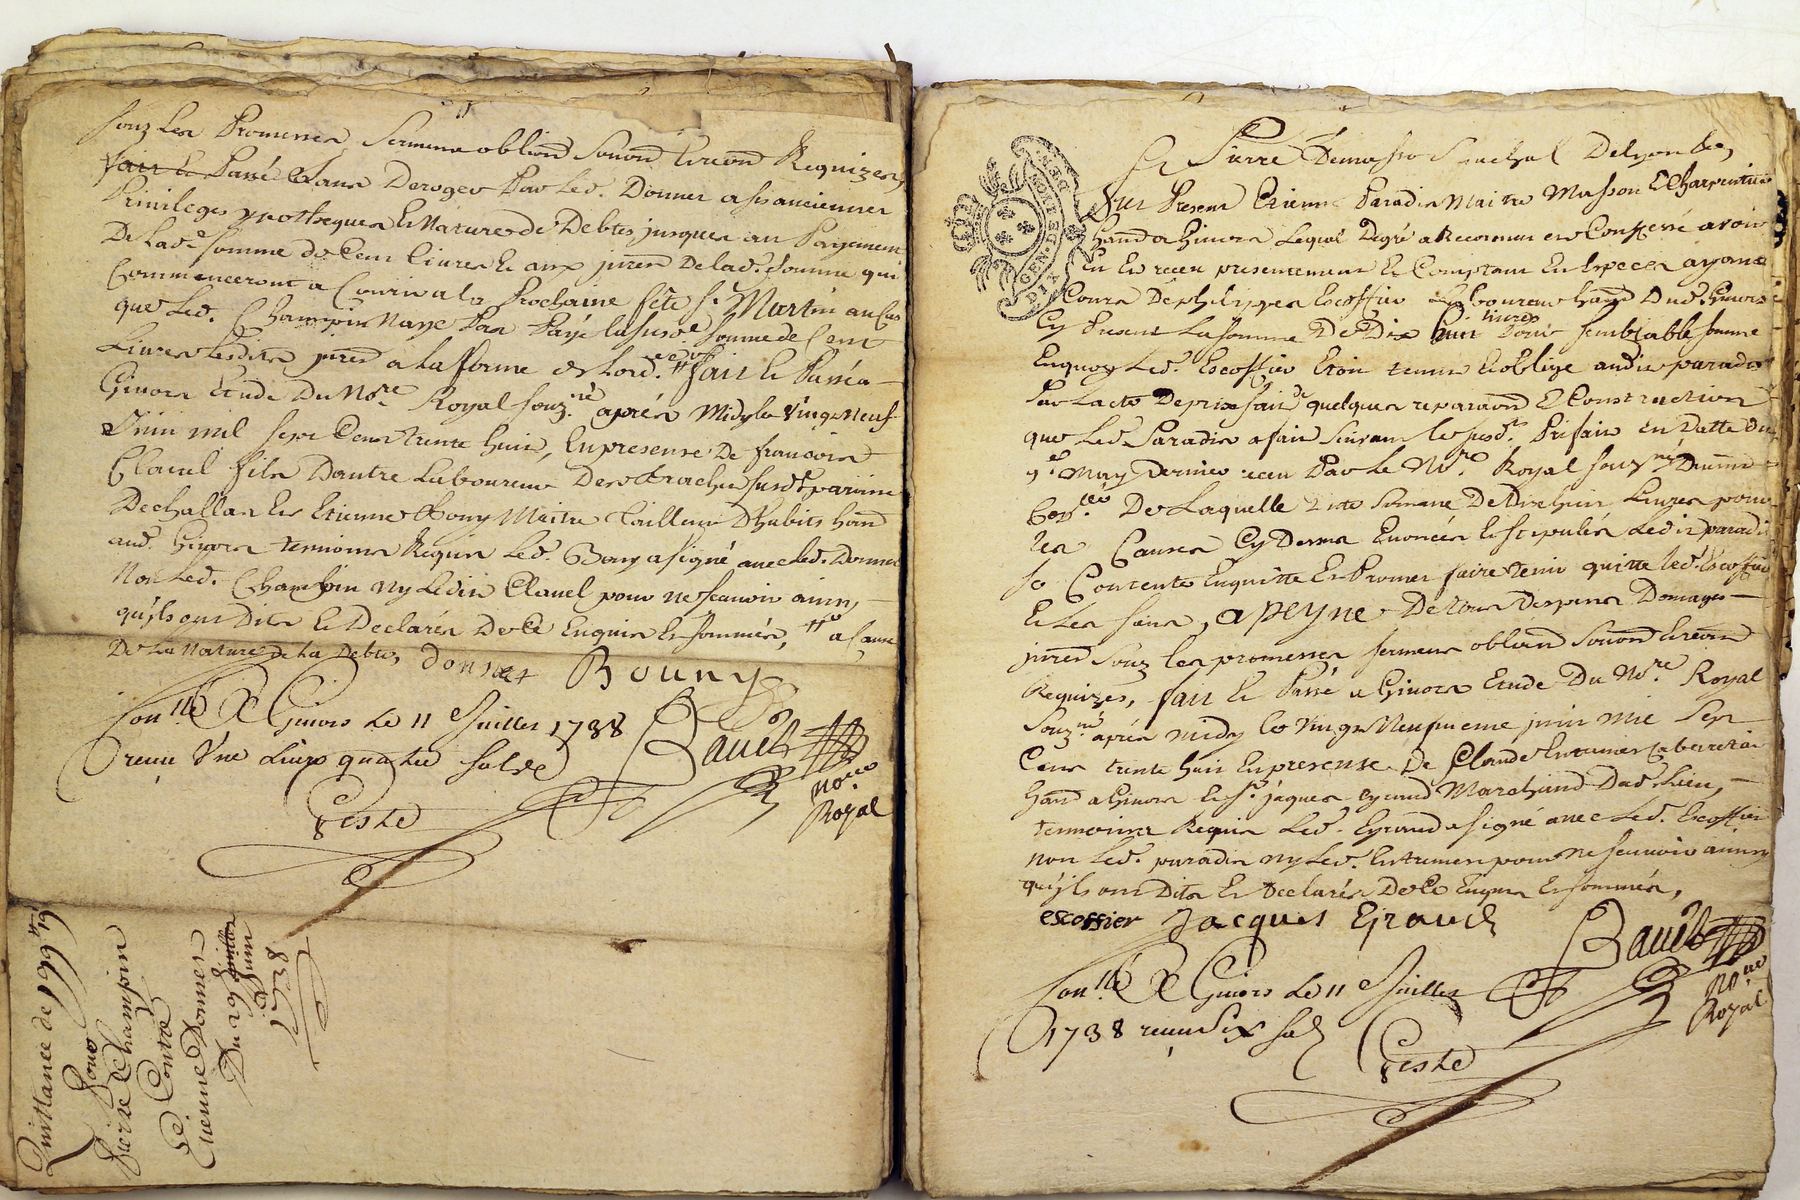 souz Les Promesses sermens obliond soumond Renond Requizes,
fait et Passé Sans Deroger Par Led. Donnet a ses anciennes
Privileges ypotheques Et Nature de Debtes jusques au Payement
De lad.e somme de Cent livres Et aux jnrest De lad. somme qui
Commenceront a Courir a la Prochaine fête St Martin au Cas
que Led. Champin Naye Pas Payé la susd.e somme de Cent
Livres Lesdits jnrest a la forme de Lord.ce fait Et Passé a
Givors Etude Du No.re Royal souz.né après Midy le vingt Neuf
Juin mil sept Cens trente huit, En presense De francois
Clauel fils Dautre Laboureur De
De challan Et Etienne Bony Maitre Tailleur Dhabits hand
aud. Givors temoins Requis Led. Bony a signé avec Led. Donnet
Non Led. Champin ny Ledit Clauel pour ne scauoir ainsy
qu'ils ont Dits Et Declarés De Ce Enquis Et sommés, a Cause
De La Nature de La Debte, donnet Bouny
Con.llé A Givors Le 11 Juillet 1738
receu Vne Liure quatre sols
Bauet
no.re
Royal
Geste
Quittance de 199
Pour
Pierre Champin
Contre
Etienne Donnet
Du 29 Juillet
Juin
1738
GEN. DE LYON
DIX DEN.
Sr Pierre Demasso Senechal De Lyon &c,
fut Present Etienne Paradis Maitre Masson & Charpentier
hand a Givors Lequel Degré a Reconnu et Confessé avoir
Eu Et receu presentement Et Comptant En Especes ayant
Cours De philippes Escoffier Laboureur hand Dud. Givors
Cy Present La somme De Dix huit livres Pour semblable somme
Enquoy Led. Escoffier Etoit tenu Et oblige audit paradis
Par Lacte De prix fait de quelques reparaond & Construction
que Led. Paradis a fait suivant le susd.t Prifait En Datte du
9.e May Dernier receu Par Le No.re Royal souz.né Duement
Con.llé De Laquelle dite somme De Dix huit Livres pour
les Causes Cy Dessus Enoncées Et stipulés Ledit paradis
se Contente Enquitte Et Promet faire tenir quitte Led. Escoffier
Et Les siens, a peyne De tous Despens Domages
jnrest souz les promesses sermens obliond soumond Renond
Requizes, fait Et Passé a Givors Etude Du No.re Royal
Souz.né après midy le vingt Neufuieme juin mil sept
Cens trente huit En presense De Claude Entrumes Cabaretier
hand a Givors Et Sr. jaques eyraud Marchand Dud. Lieu,
temoins Requis Led. Eyraud a signé avec Led. Escoffier
non Led. paradis ny Led. Entrumes pour ne scauoir ainsy
qu'ils ont Dits Et Declarés De Ce Enquis Et sommés,
escoffier Jacques Eyraud
Bauet
no.re
Royal
Con.llé A Givors Le 11 Juillet
1738 receu Six sols
Geste